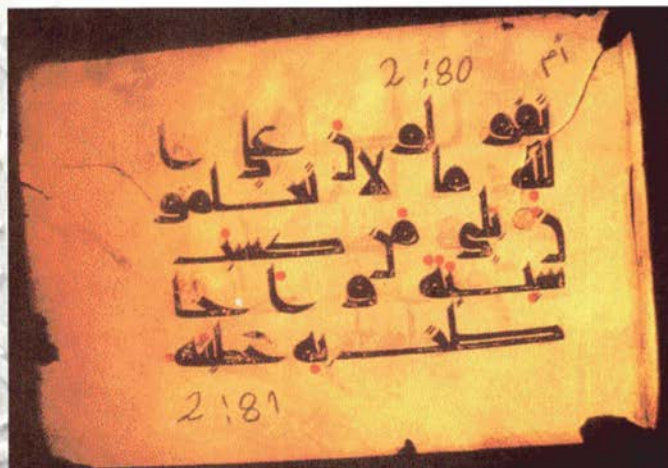 2:80 أم
تقولون علي ا
لله ما لا تعلمو
ن بلي من كسب
سيية و احا
طت به خطيته
2:81